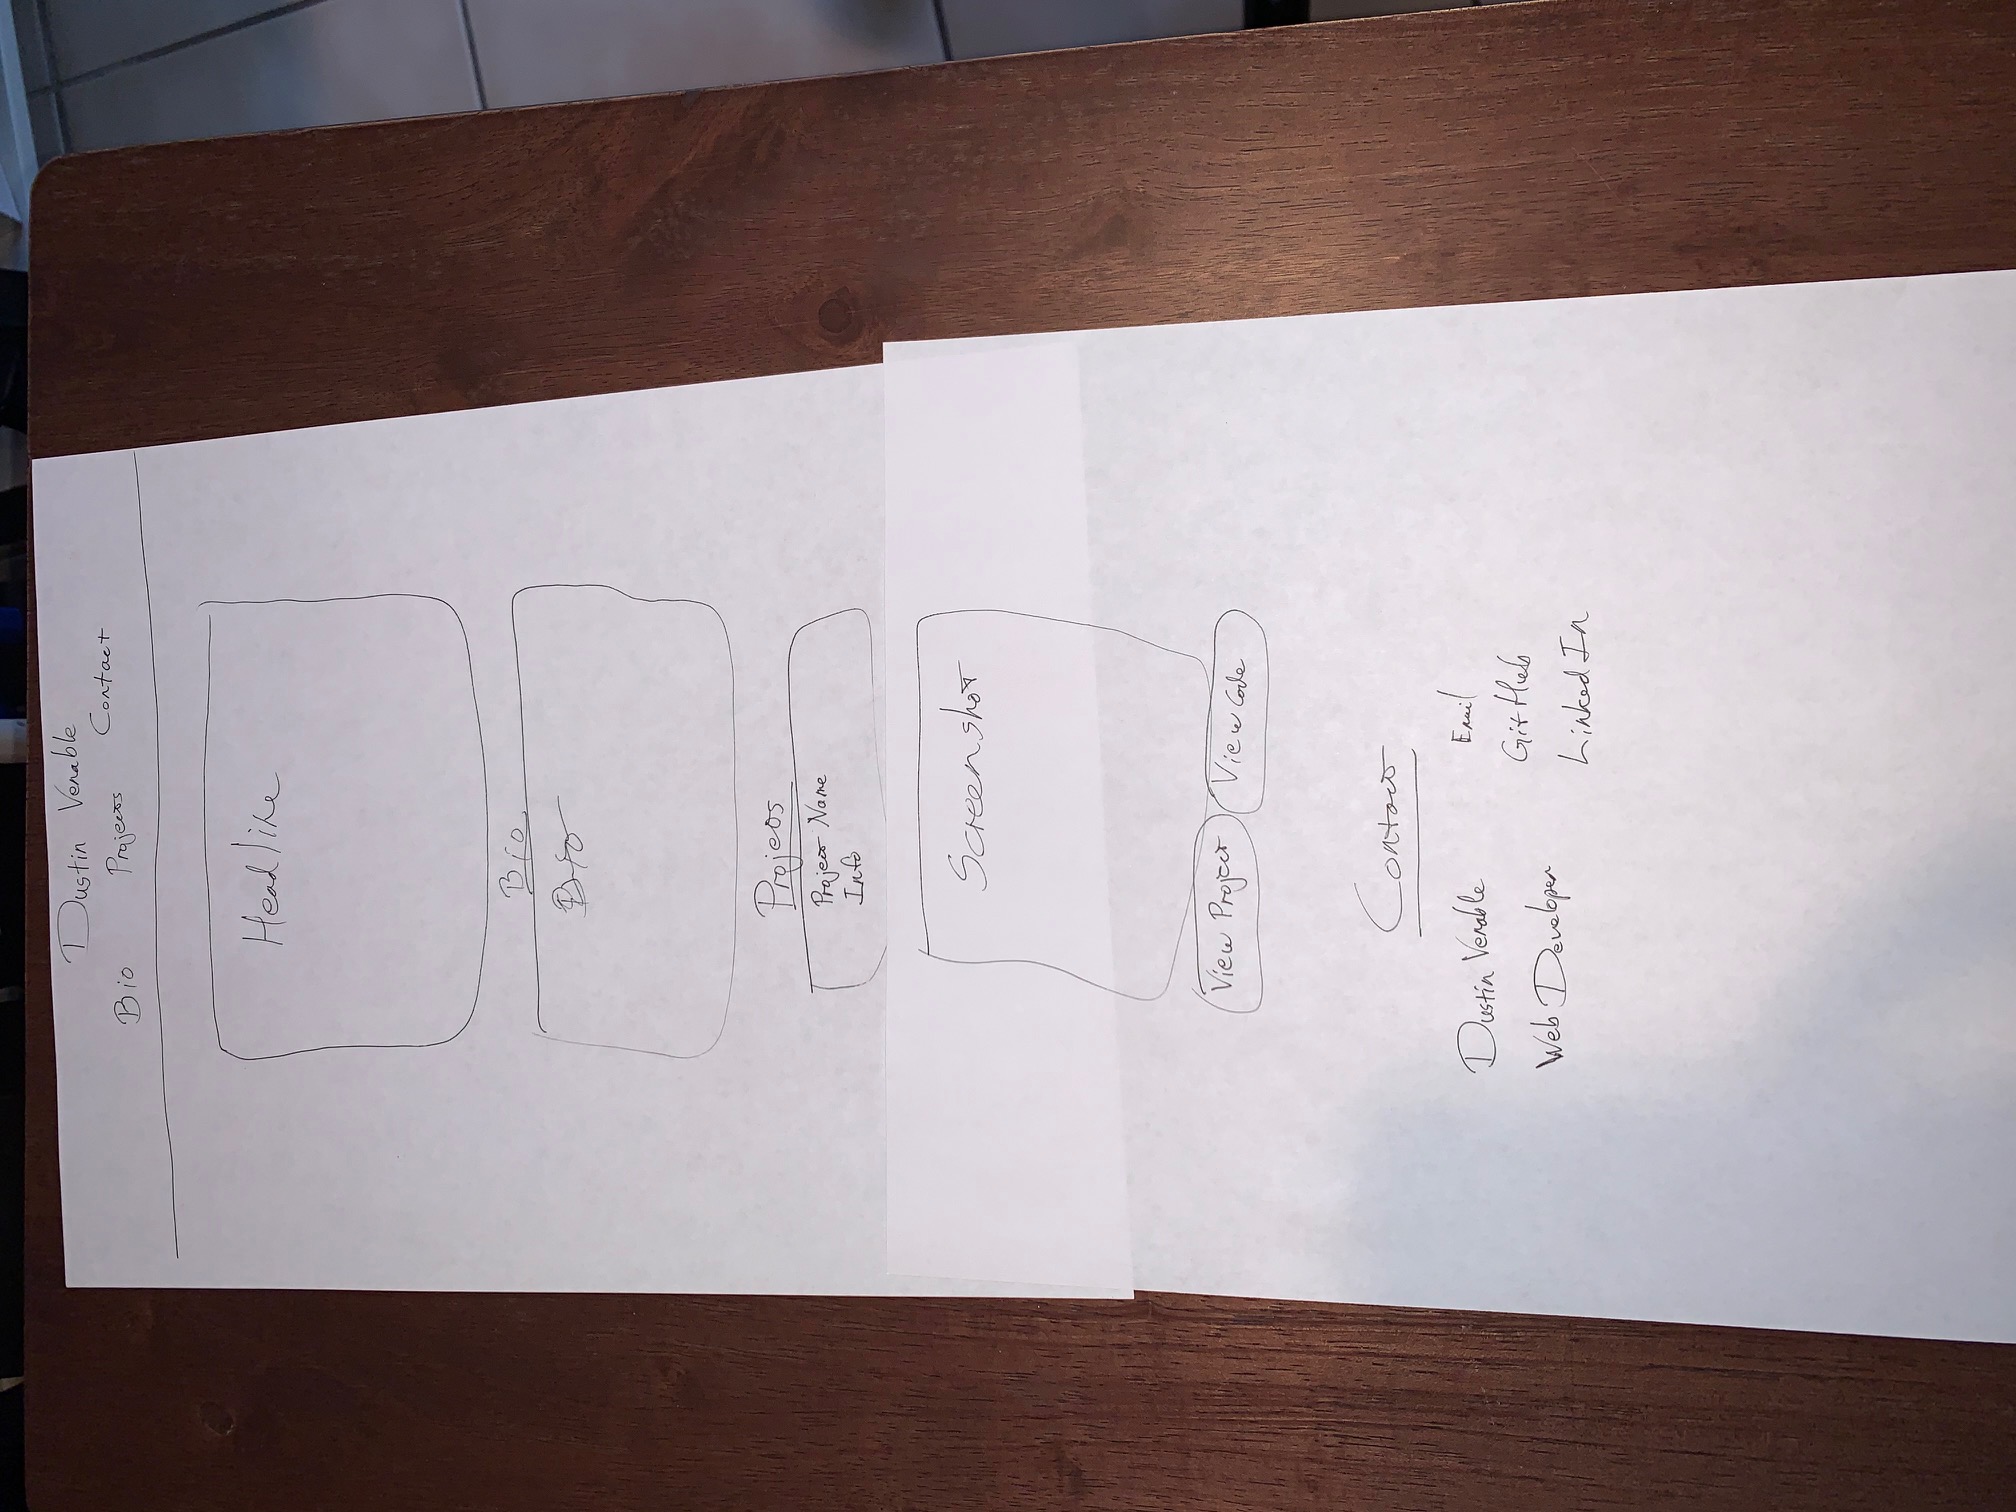 Dustin Venable
Bio Projects Contact
Headline
Bio
Bio
Projects
Project Name
Info
Screenshot
View Project View Code
Contact
Dustin Venable
Web Developer
Email
GitHub
LinkedIn